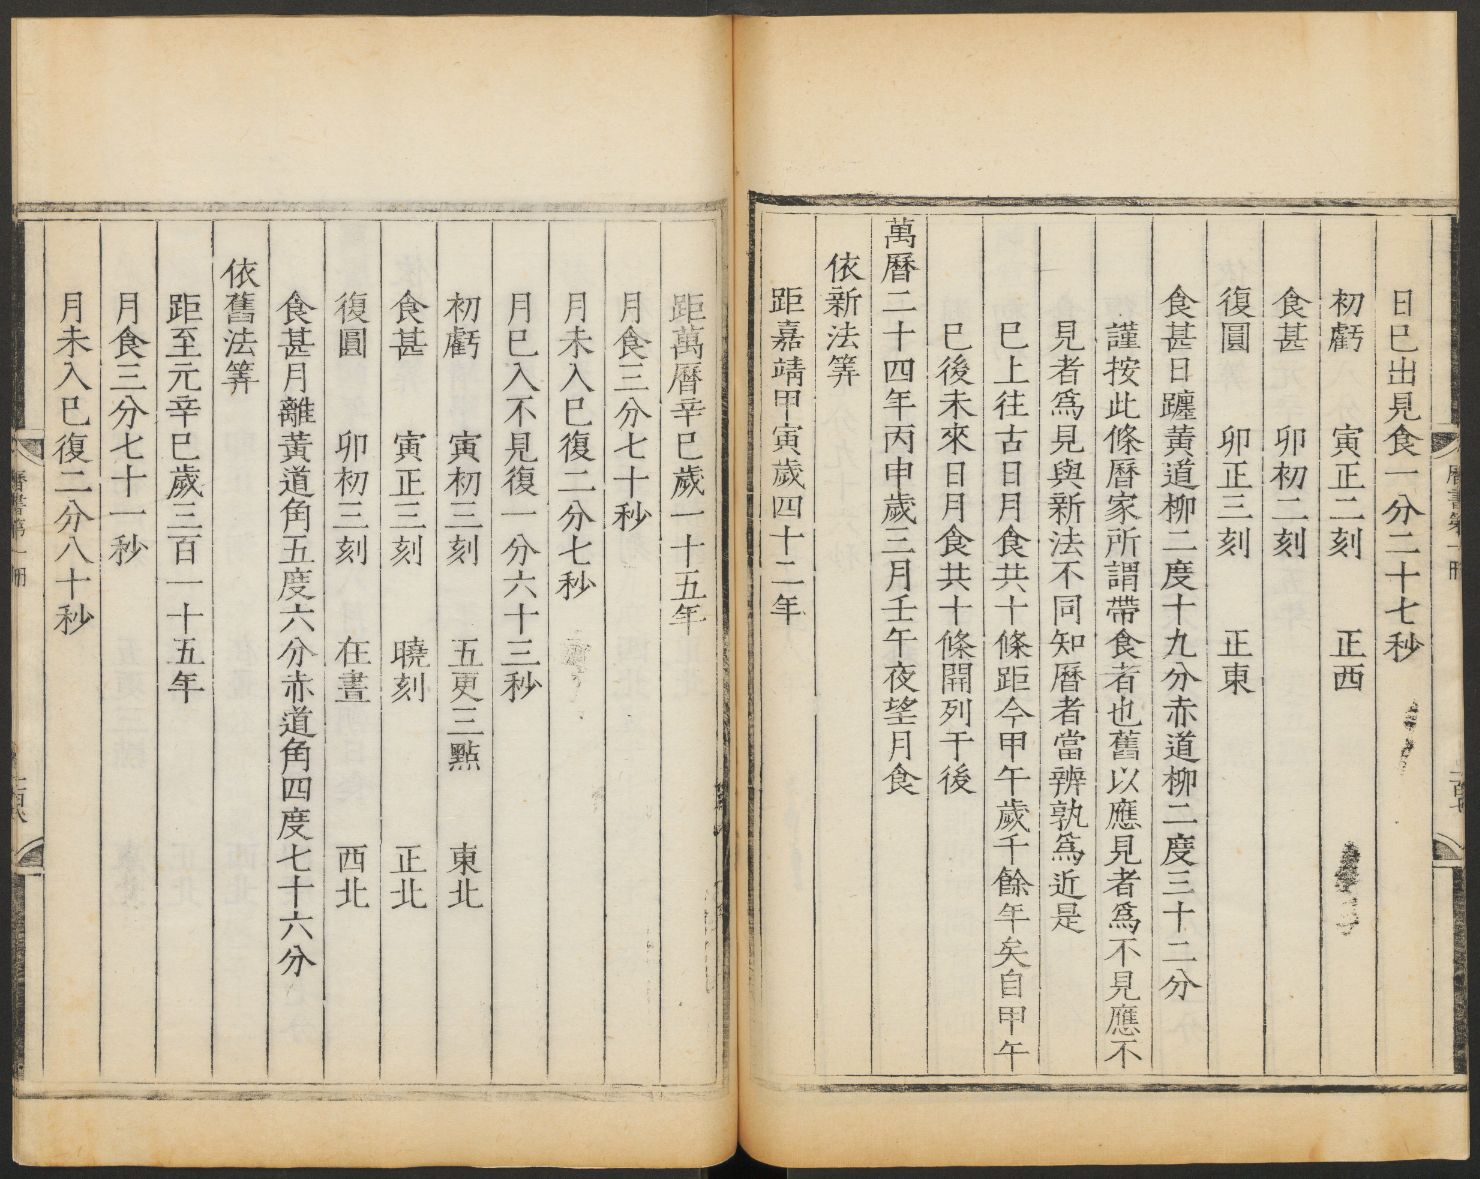 日巳出見食一分二十七秒
初虧　寅正二刻　正西
食甚　卯初二刻
復圓　卯正三刻　正東
食甚日躔黃道柳二度十九分赤道柳二度三十二分
謹按此條曆家所謂帶食者也舊以應見者為不見應不
見者為見與新法不同知曆者當辨孰為近是
巳上往古日月食共十條距今甲午歲千餘年矣自甲午
巳後未來日月食共十條開列于後
萬曆二十四年丙申歲三月壬午夜望月食
依新法筭
距嘉靖甲寅歲四十二年
曆書第一冊
二百七
距萬曆辛巳歲一十五年
月食三分七十秒
月未入巳復二分七秒
月巳入不見復一分六十三秒
初虧　寅初三刻　五更三點　東北
食甚　寅正三刻　曉刻　正北
復圓　卯初三刻　在晝　西北
食甚月離黃道角五度六分赤道角四度七十六分
依舊法筭
距至元辛巳歲三百一十五年
月食三分七十一秒
月未入巳復二分八十秒
曆書第一冊
二百八